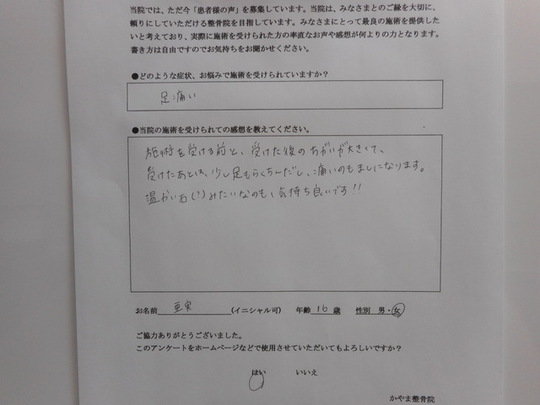 当院では、ただ今「患者様の声」を募集しています。当院は、みなさまとのご縁を大切に、
頼りにしていただける整骨院を目指しています。みなさまにとって最良の施術を提供した
いと考えており、実際に施術を受けられた方の率直なお声や感想が何よりの力となります。
書き方は自由ですのでお気持ちをお聞かせください。
●どのような症状、お悩みで施術を受けられていますか?
足痛い
●当院の施術を受けられての感想を教えてください。
施術を受ける前と、受けた後のちがいが大きくて、
受けたあとは、少し足もらくちんだし、痛いのもましになります。
温かい石(?)みたいなのも、気持ち良いです!!
お名前 亜実 (イニシャル可) 年齢 16 歳 性別 男・女
ご協力ありがとうございました。
このアンケートをホームページなどで使用させていただいてもよろしいですか?
はい いいえ
かやま整骨院